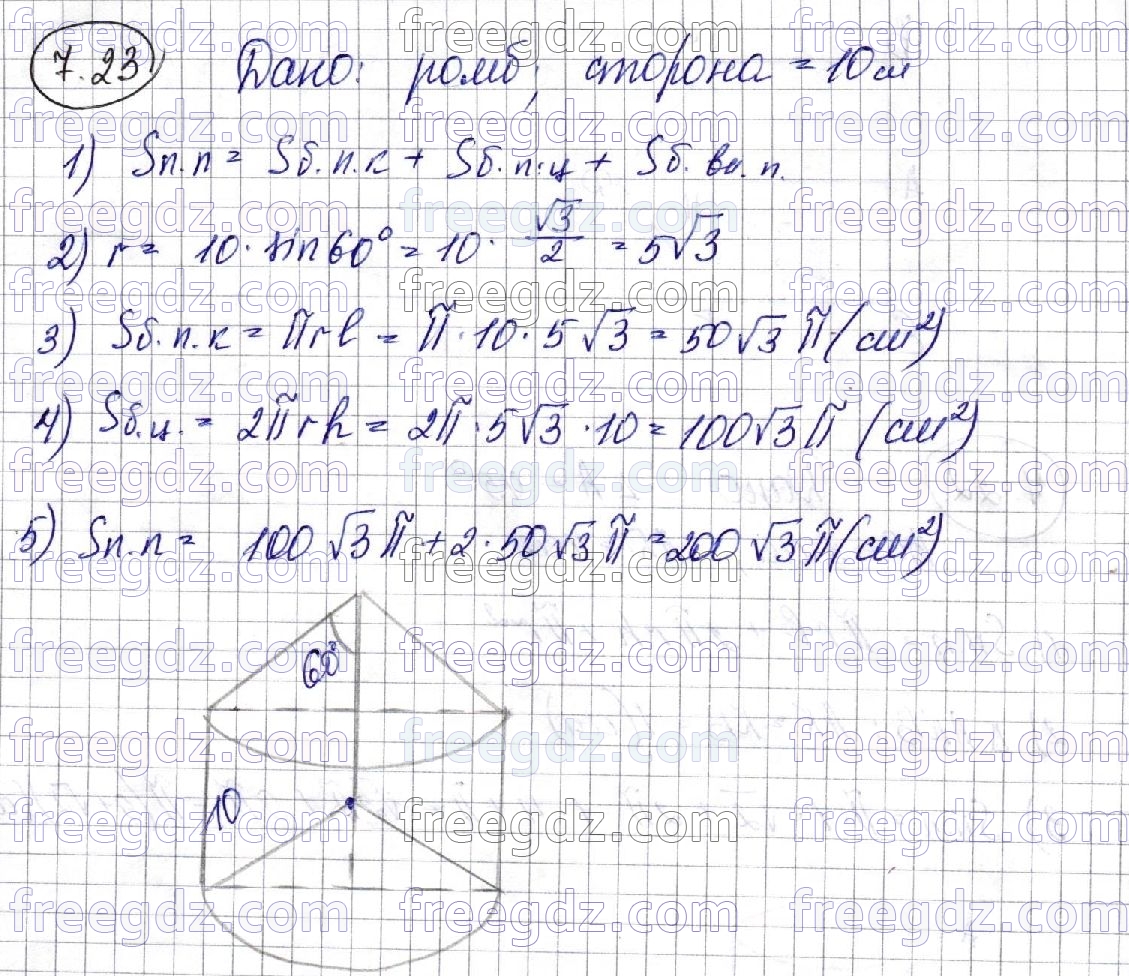 7.23 Дано: ромб, сторона = 10 см
1) Sп.п = Sб.п.к + Sб.п.ц + Sб. вн. п.
2) r = 10 · sin 60° = 10 · √3/2 = 5√3
3) Sб.п.к = πrl = π · 10 · 5√3 = 50√3 π (см²)
4) Sб.ц. = 2πrh = 2π · 5√3 · 10 = 100√3 π (см²)
5) Sп.п = 100√3 π + 2 · 50√3 π = 200√3 π (см²)
60°
10
freegdz.com